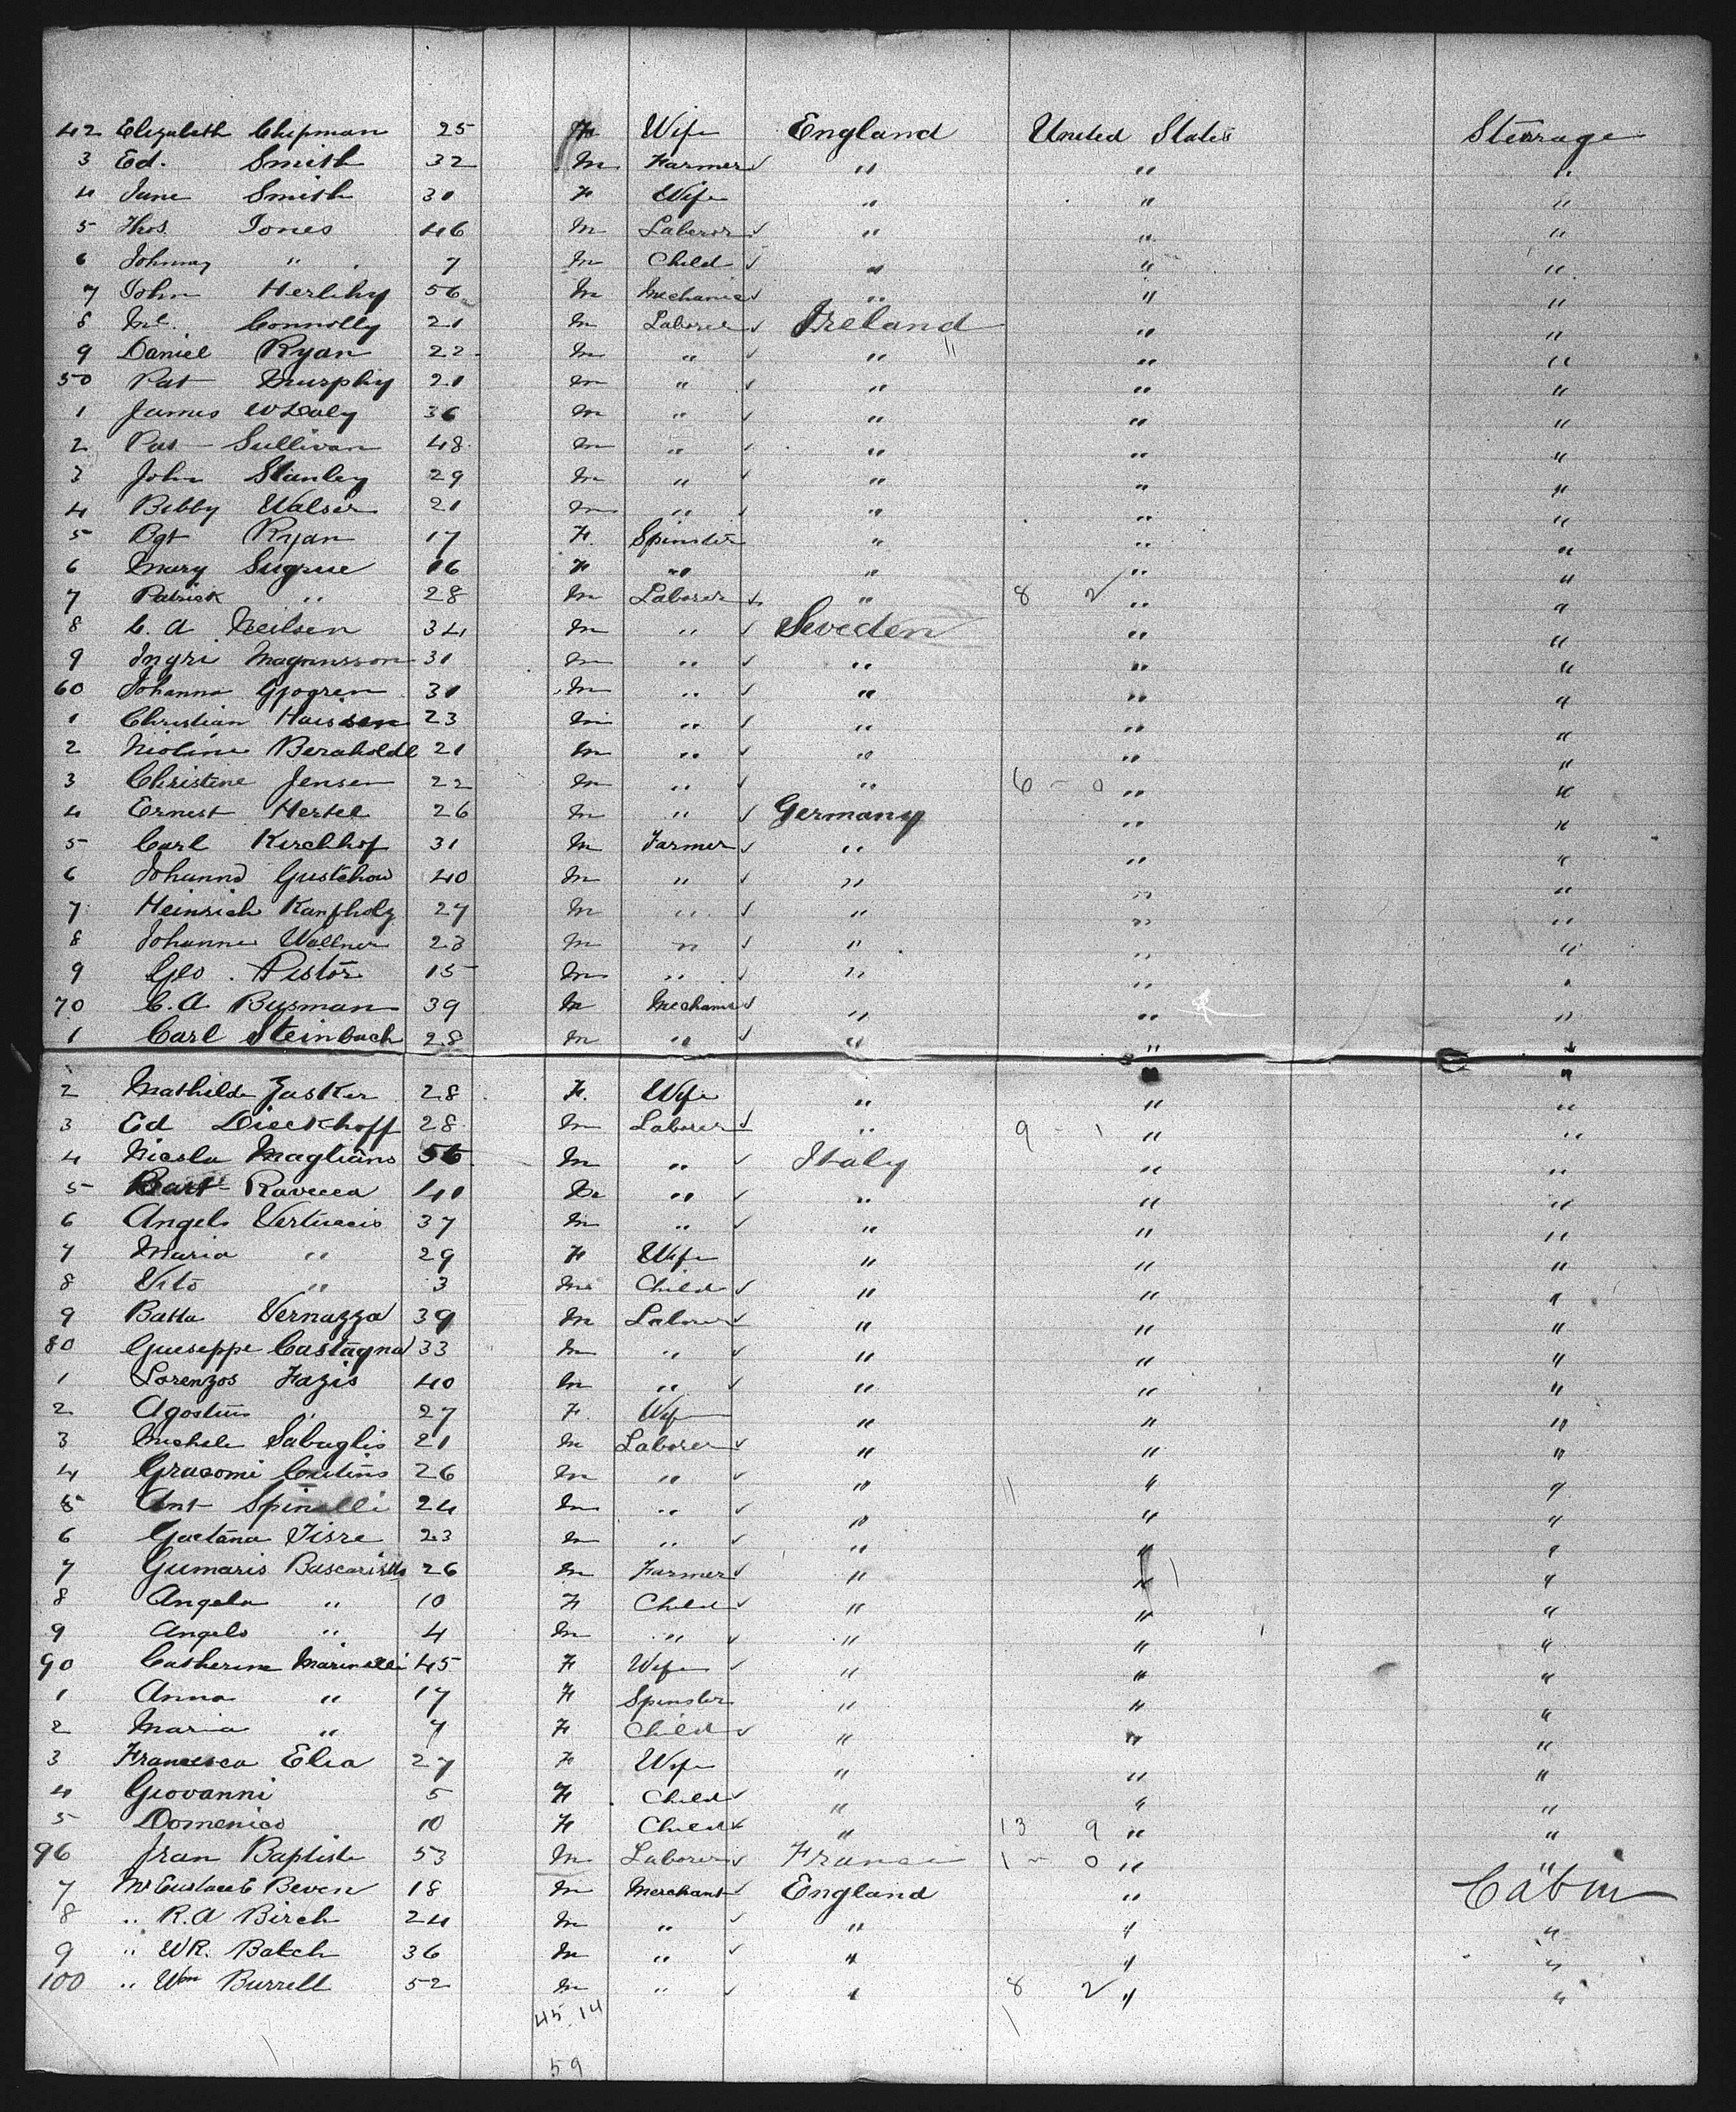 42 Elizabeth Chipman 25 F Wife England United States Steerage
3 Ed. Smith 32 M Farmer " " "
4 Jane Smith 30 F Wife " " "
5 Thos. Jones 46 M Laborer " " "
6 Johnny " 7 M Child " " "
7 John Herlihy 56 M Mechanic " " "
8 Ml. Connolly 21 M Laborer Ireland " "
9 Daniel Ryan 22 M " " " "
50 Pat Murphy 21 M " " " "
1 James 36 M " " " "
2 Pat Sullivan 48 M " " " "
3 John Stanley 29 M " " " "
4 Bibby 21 M " " " "
5 Bgt Ryan 17 F. Spinster " " "
6 Mary Sugrue 16 F " " " "
7 Patrick " 28 M Laborer " 8 2 " "
8 C. A. Neilsen 34 M " Sweden " "
9 Ingri Magnusson 31 M " " " "
60 Johanna 31 M " " " "
1 Christian 23 M " " " "
2 21 M " " " "
3 Christine Jensen 22 M " " 6 - 0 " "
4 Ernest Hertel 26 M " Germany " "
5 Carl Kirchhof 31 M Farmer " " "
6 Johannd Gustchow 40 M " " " "
7 Heinrich Kanfholz 27 M " " " "
8 Johanne Wallner 23 M " " " "
9 Geo. Pistor 15 M " " " "
70 C. A Busman 39 M Mechanic " " "
1 Carl Steinbach 28 M " " " "
2 Mathilde Zasker 28 F. Wife " " "
3 Ed Dieckhoff 28 M Laborer " 9 - 1 " "
4 Nicola Magliano 56 M " Italy " "
5 Bart Ravecca 40 M " " " "
6 Angelo Vertuccio 37 M " " " "
7 Maria " 29 F Wife " " "
8 Vito " 3 M Child " " "
9 Batta Vernazza 39 M Laborer " " "
80 Guiseppe Castagna 33 M " " " "
1 Lorenzos Fazis 40 M " " " "
2 Agostino " 27 F. Wife " " "
3 Michele Sabuglis 21 M Laborer " " "
4 26 M " " " "
5 Ant Spinelli 24 M " " " "
6 Gaetana 23 M " " " "
7 Gumaris 26 M Farmer " " "
8 Angela " 10 F Child " " "
9 Angelo " 4 M " " " "
90 Catherine Marinelli 45 F Wife " " "
1 Anna " 17 F Spinster " " "
2 Maria " 7 F Child " " "
3 Francesca Elia 27 F Wife " " "
4 Giovanni 5 F Child " " "
5 Domenico 10 F Child " 13 9 " "
96 Jean Baptiste 53 M Laborer France 1 - 0 " "
7 Mr Eustace E Beven 18 M Merchant England " Cabin
8 " R. A Birch 24 M " " " "
9 " WR. Batch 36 M " " " "
100 " Wm Burrell 52 M " " 8 2 " "
45. 14
59